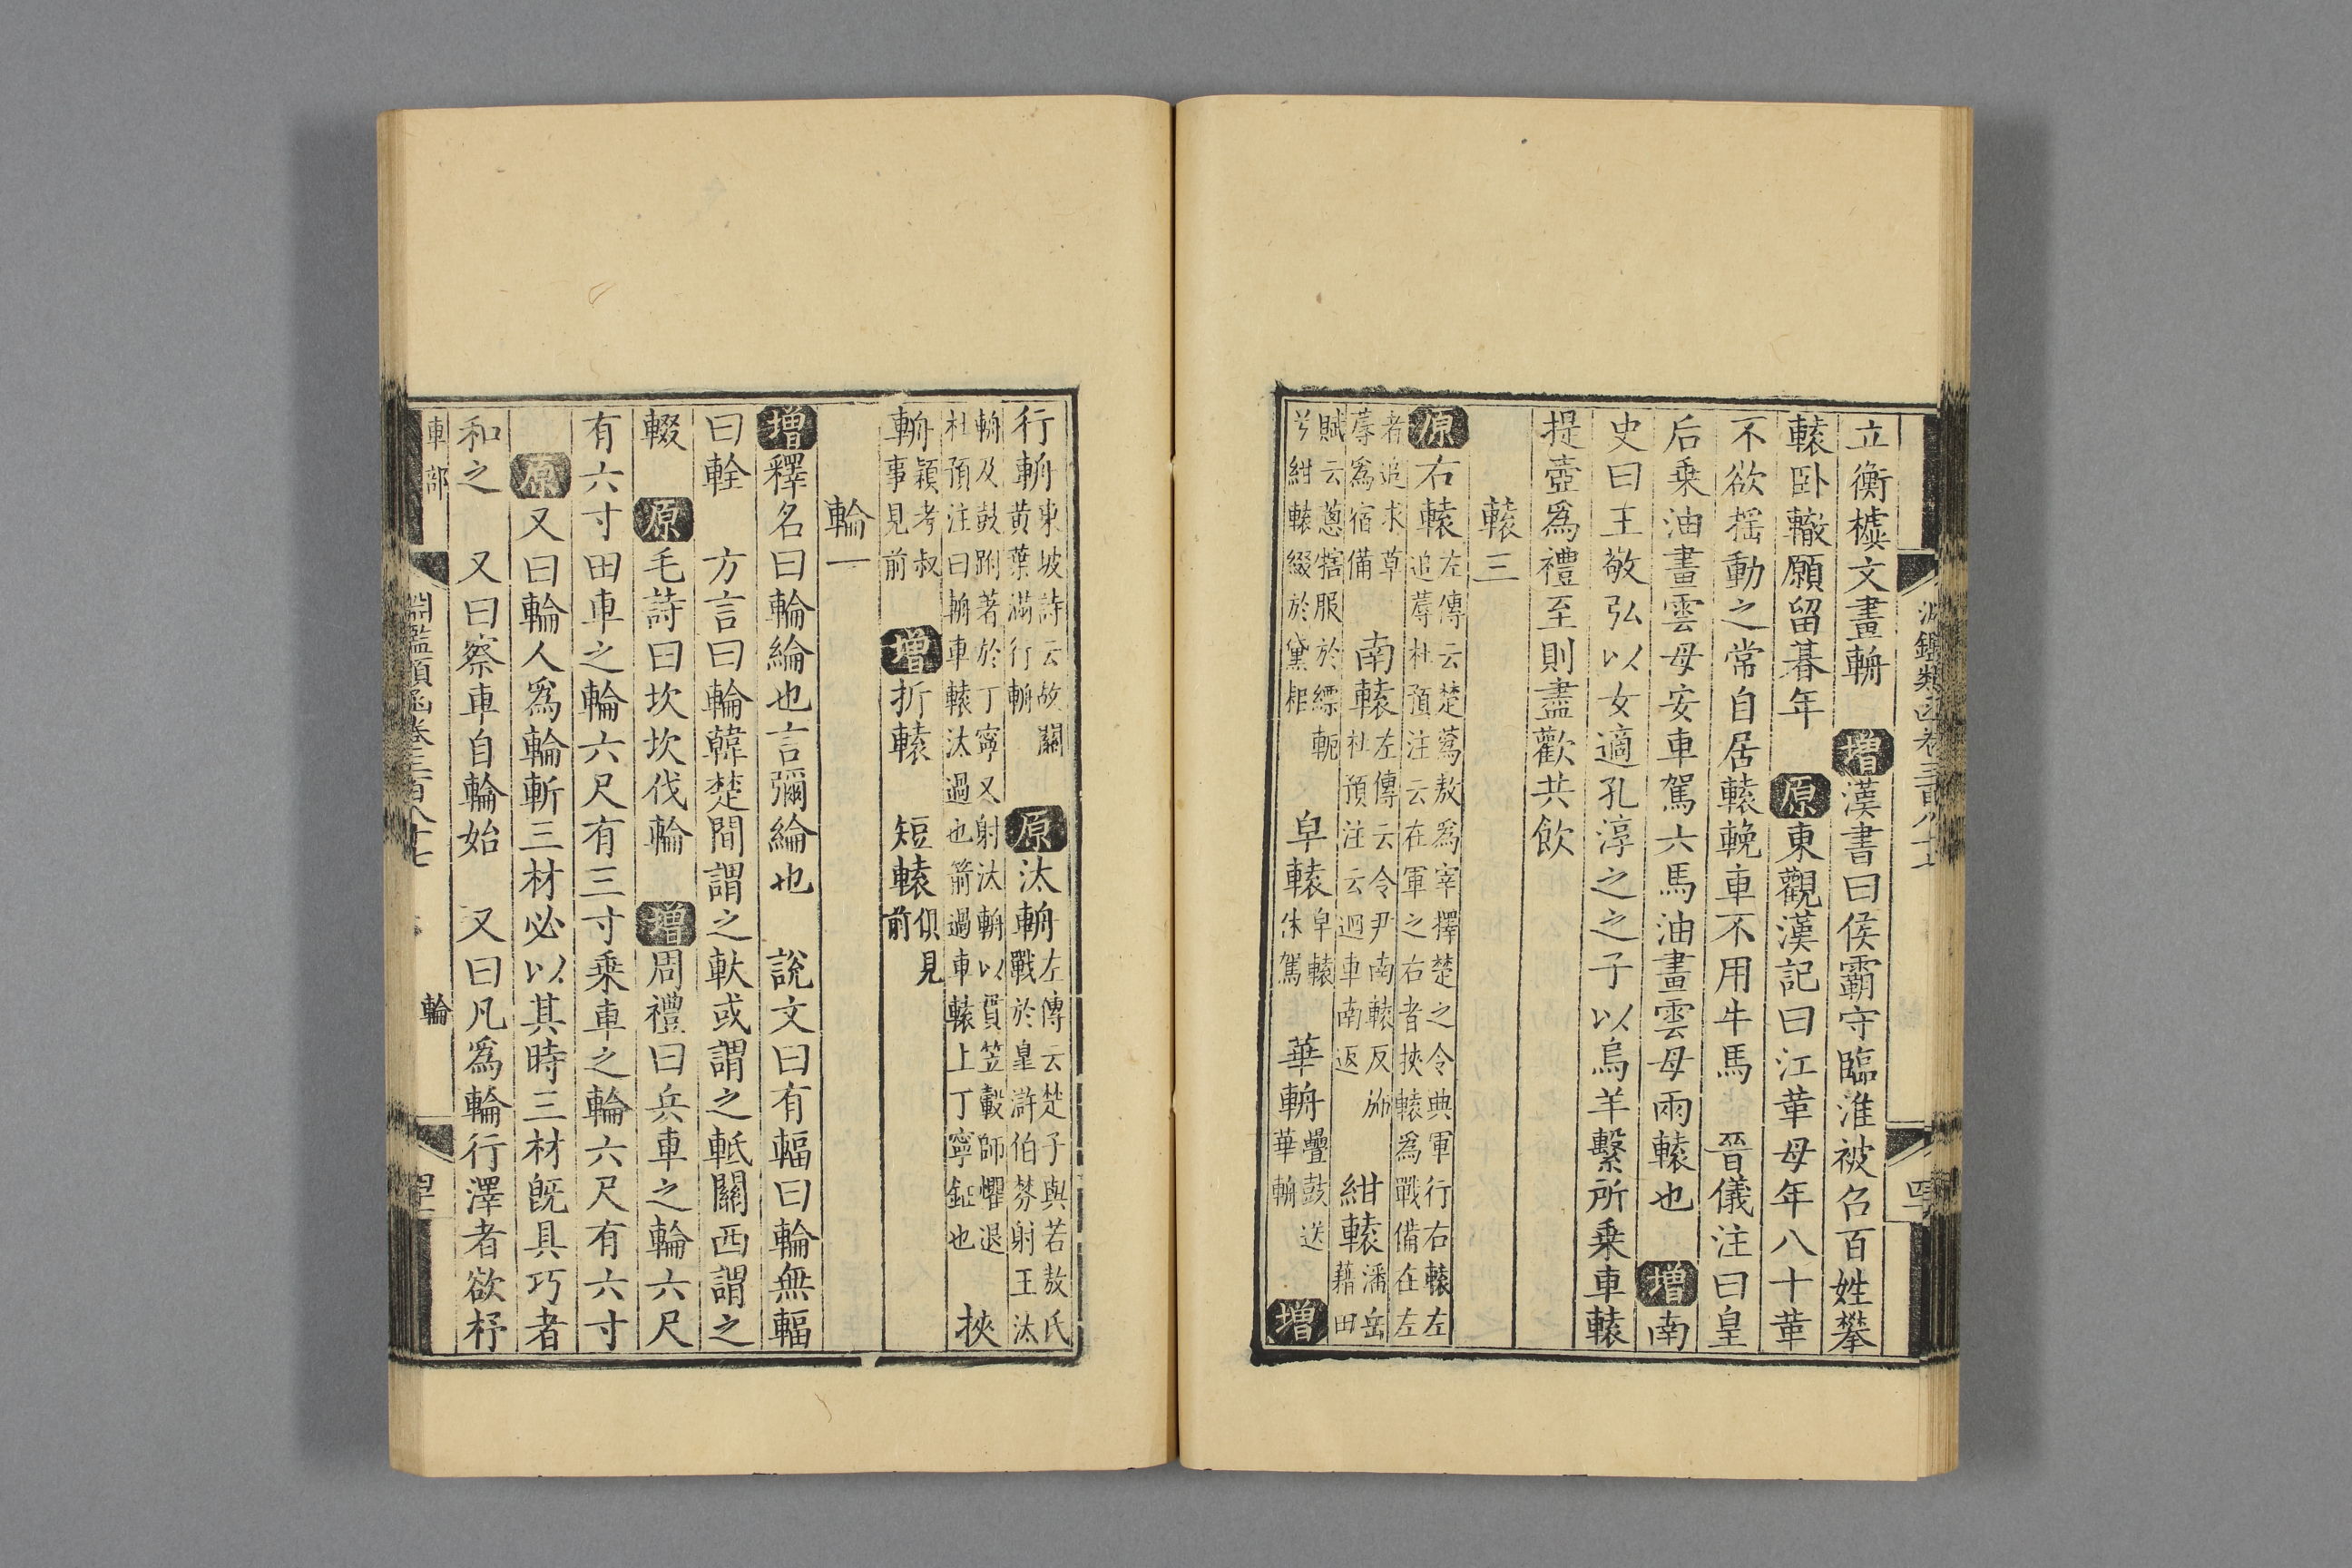 立衡櫖文畫輈 增漢書曰侯霸守臨淮被召百姓攀
轅卧轍願留朞年 原東觀漢記曰江革母年八十革
不欲揺動之常自居轅輓車不用牛馬 晉儀注曰皇
后乗油畫雲母安車駕六馬油畫雲母兩轅也 增南
史曰王敬弘以女適孔淳之之子以烏羊繫所乗車轅
提壺爲禮至則盡歡共飲
轅三
原右轅左傳云楚蒍敖爲宰擇楚之令典軍行右轅左
追蓐杜預注云在軍之右者挾轅爲戰備在左
者追求草
蓐爲宿備 南轅左傳云令尹南轅反旆
杜預注云迴車南返 紺轅潘岳
藉田
賦云蔥犗服於縹軛
兮紺轅綴於黛耜 阜轅阜轅
朱駕 華輈華輈
疊鼓送 增
行輈東坡詩云故關
黄葉滿行輈 原汰輈左傳云楚子與若敖氏
戰於皇滸伯棼射王汰
輈及鼓跗著於丁寧又射汰輈以貫笠轂師懼退
杜預注曰輈車轅汰過也箭過車轅上丁寧鉦也 挾
輈頴考叔
事見前 增折轅 短轅俱見
前
輪一
增釋名曰輪綸也言彌綸也 說文曰有輻曰輪無輻
曰輇 方言曰輪韓楚間謂之軑或謂之軝關西謂之
輟 原毛詩曰坎坎伐輪 增周禮曰兵車之輪六尺
有六寸田車之輪六尺有三寸乗車之輪六尺有六寸
原又曰輪人爲輪斬三材必以其時三材旣具巧者
和之 又曰察車自輪始 又曰凡爲輪行澤者欲杼
車部 淵鑑類函卷三百八十七 輪